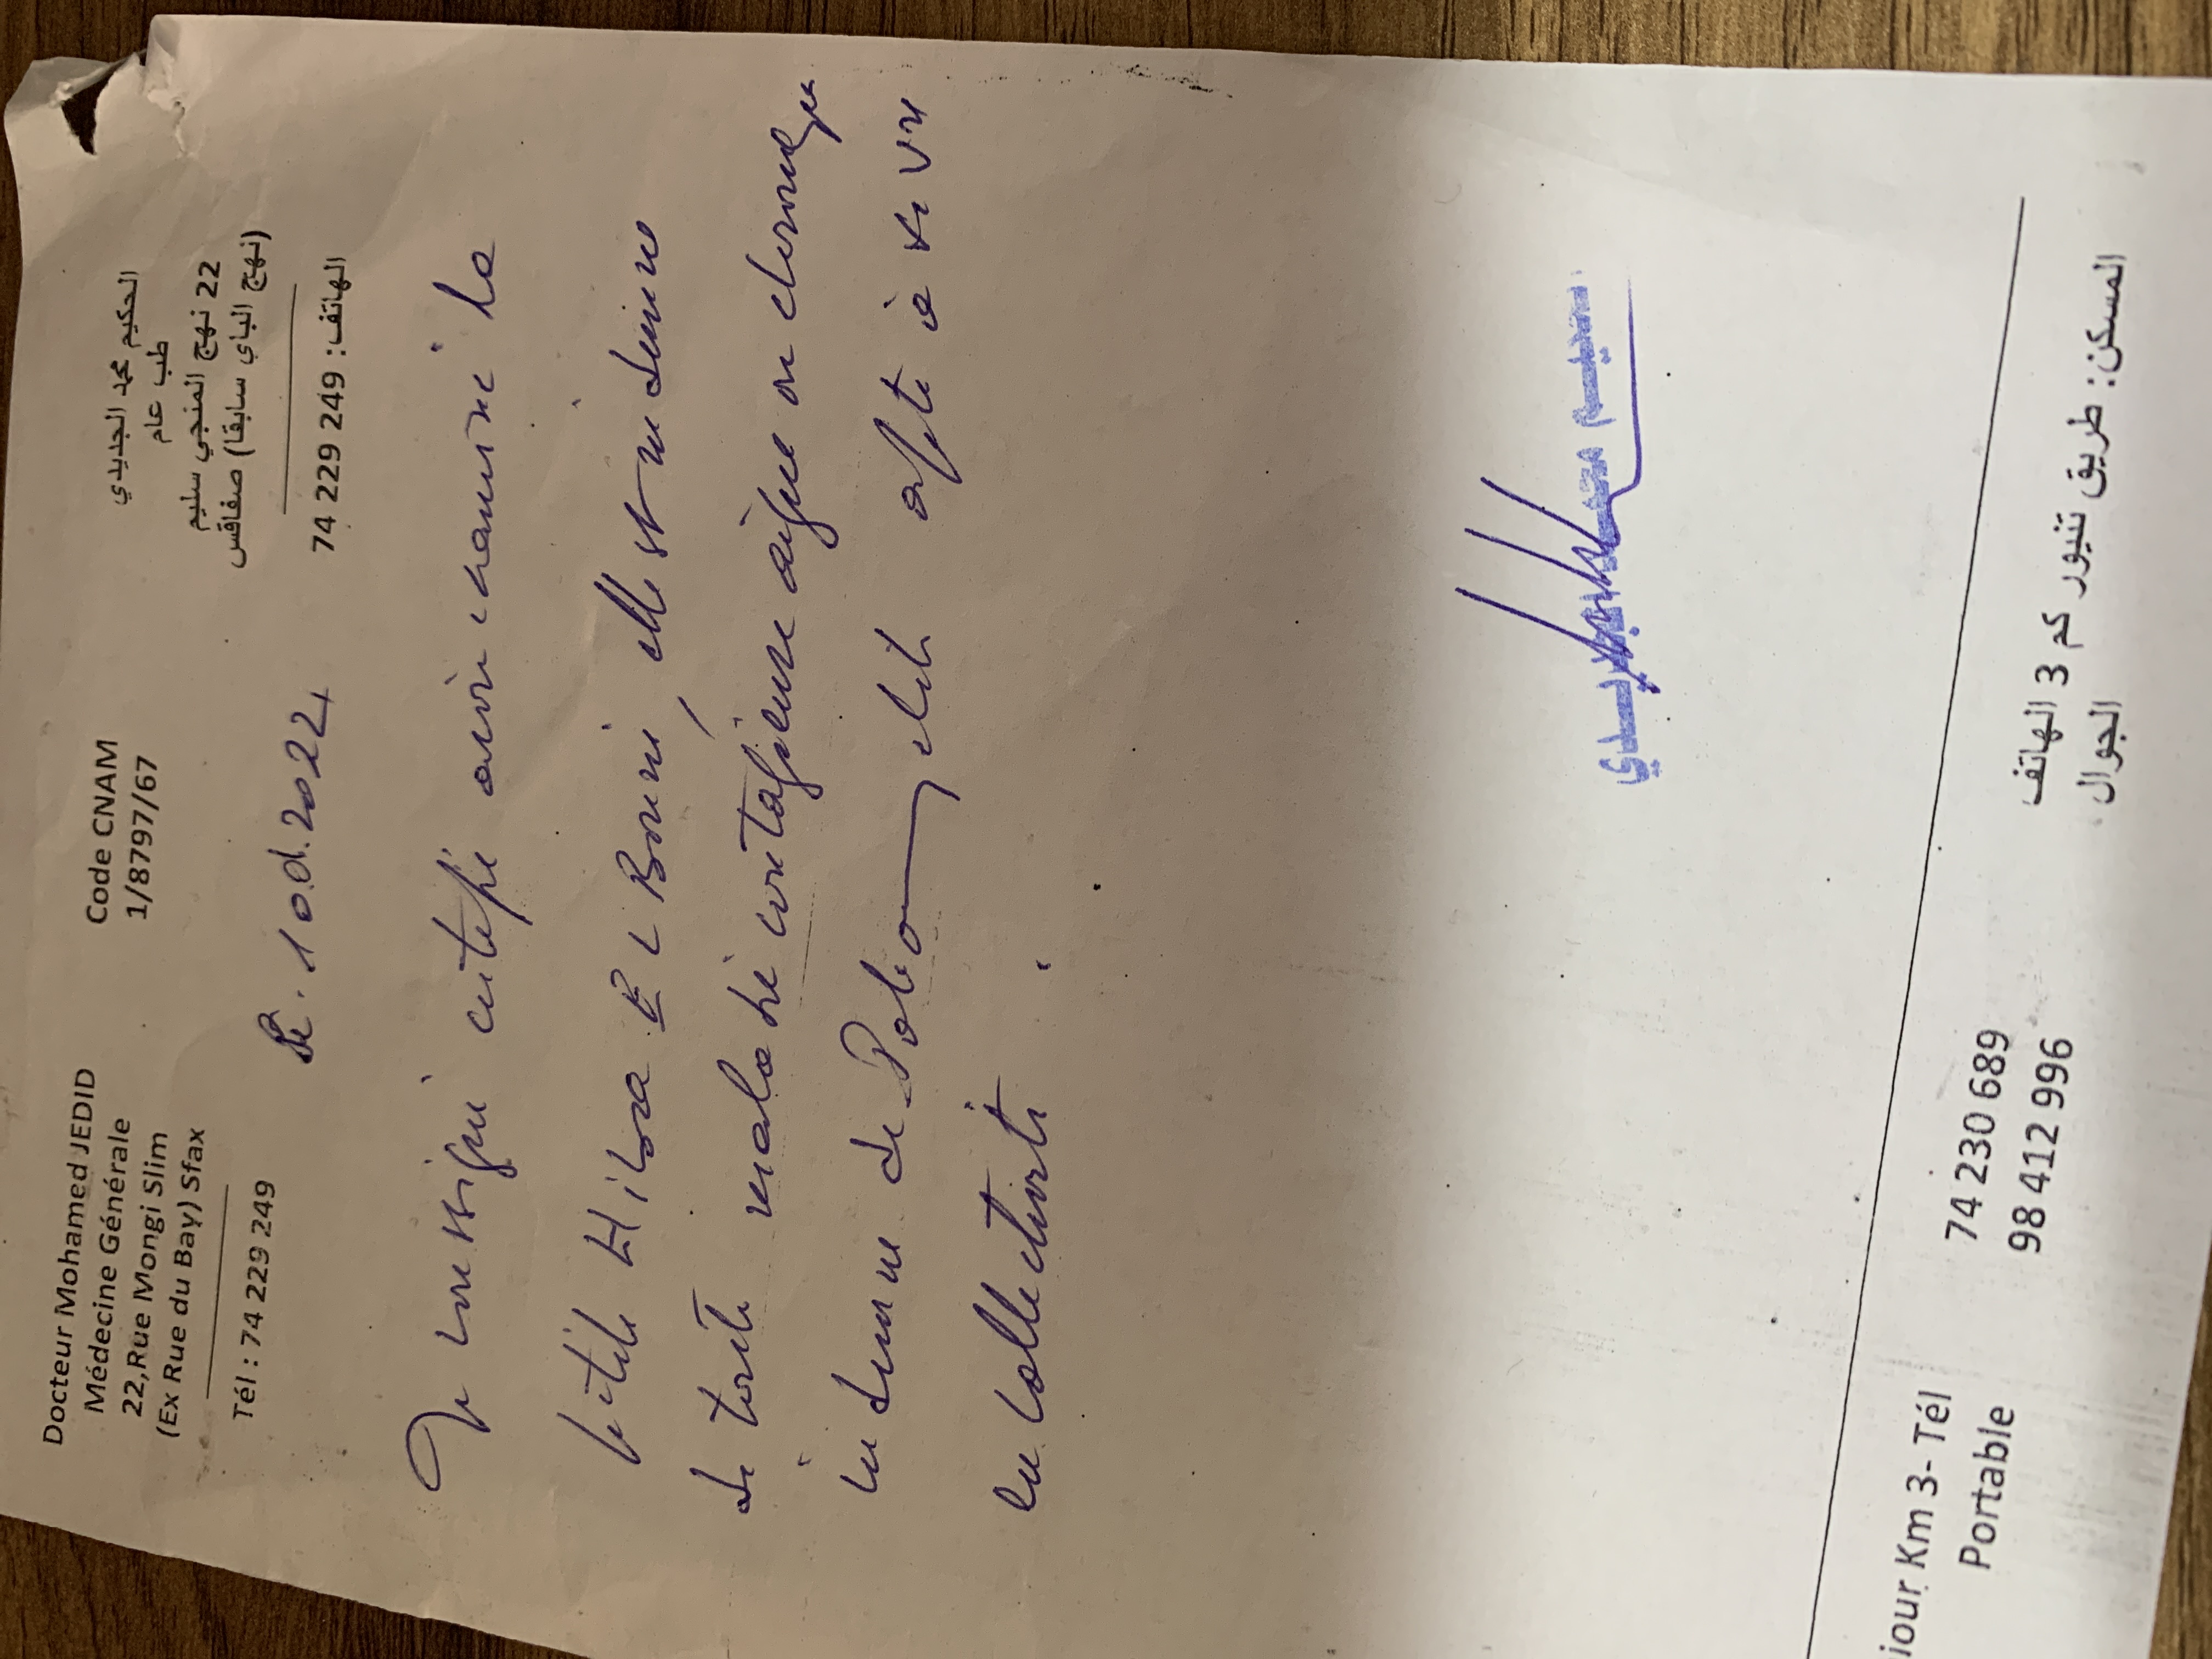 Docteur Mohamed JEDID
Médecine Générale
22,Rue Mongi Slim
(Ex Rue du Bay) Sfax
Tél : 74 229 249
Code CNAM
1/8797/67
الحكيم محمد الجديدي
طب عام
22 نهج المنجي سليم
(نهج الباي سابقا) صفاقس
الهاتف: 74 229 249
Le. 10.01.2022
Je soussigné certifie avoir examiné la
petite Hiba EL Bouni, elle est indemne
de toute maladie contagieuse aigue ou chronique
indemne de et apte à vivre
en collectivité.
الحكيم محمد الجديدي
iour Km 3- Tél 74 230 689
Portable 98 412 996
المسكن: طريق تنيور كم 3 الهاتف
الجوال